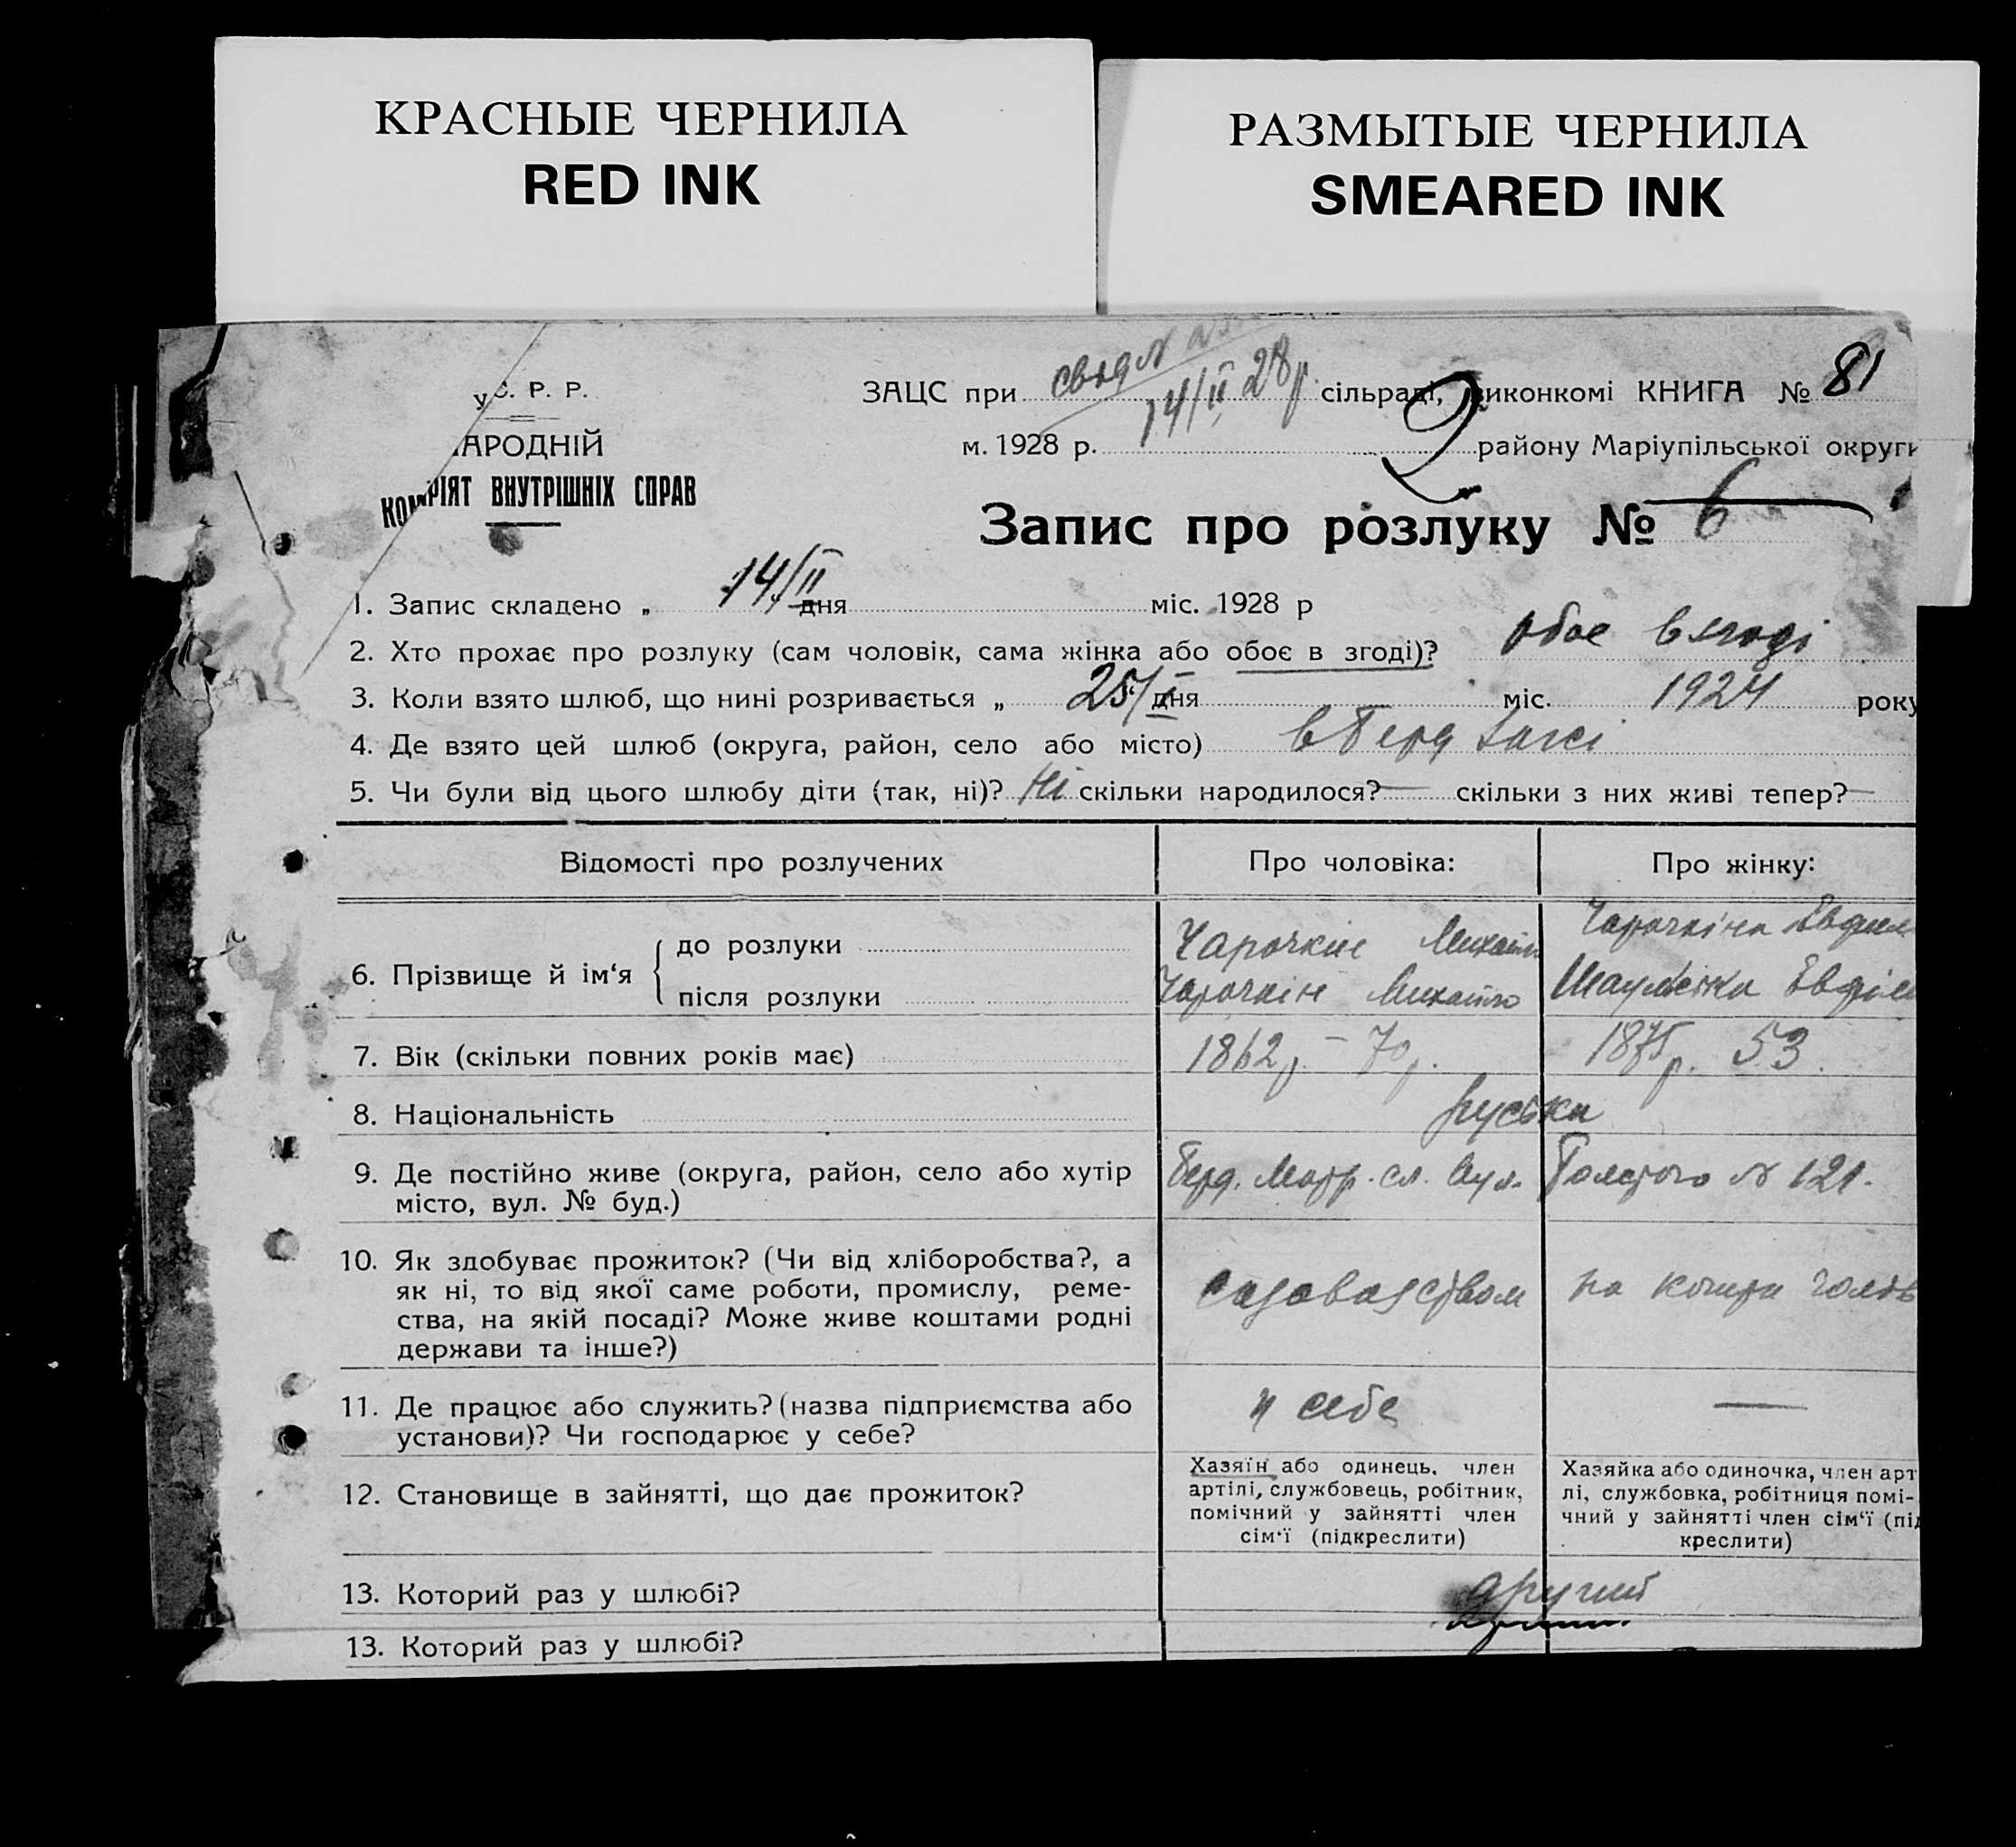 КРАСНЫЕ ЧЕРНИЛА
RED INK
РАЗМЫТЫЕ ЧЕРНИЛА
SMEARED INK
У С. Р. Р.
АРОДНІЙ
КОМ РІЯТ ВНУТРІШНІХ СПРАВ
ЗАЦС при 14/II 28 р сільраді, виконкомі КНИГА № 81
м. 1928 р. 2 району Маріупільської округи
Запис про розлуку № 6
1. Запис складено „ 14/II дня міс. 1928 р
2. Хто прохає про розлуку (сам чоловік, сама жінка або обоє в згоді)? обоє в згоді
3. Коли взято шлюб, що нині розривається „ 25/ дня міс. 1924 року
4. Де взято цей шлюб (округа, район, село або місто) в Берд
5. Чи були від цього шлюбу діти (так, ні)? Ні скільки народилося? — скільки з них живі тепер? —
Відомості про розлучених Про чоловіка: Про жінку:
6. Прізвище й ім‘я
до розлуки Чарочкін Михайло Чарочкіна Евдим
після розлуки Чарочкін Михайло Евдим
7. Вік (скільки повних років має) 1862 р. – 70 р. 1875 р. 53.
8. Національність руська
9. Де постійно живе (округа, район, село або хутір
місто, вул. № буд.) Берд. сл. вул. Толстого № 121.
10. Як здобуває прожиток? (Чи від хліборобства?, а
як ні, то від якої саме роботи, промислу, реме-
ства, на якій посаді? Може живе коштами родні
держави та інше?)
садоводством на кошти чолов
11. Де працює або служить? (назва підприємства або
установи)? Чи господарює у себе?
у себе —
12. Становище в зайнятті, що дає прожиток?
Хазяїн або одинець, член
артілі, службовець, робітник,
помічний у зайнятті член
сім‘ї (підкреслити)
Хазяйка або одиночка, член арт
лі, службовка, робітниця помі-
чний у зайнятті член сім‘ї (під
креслити)
13. Которий раз у шлюбі? другий
13. Которий раз у шлюбі?